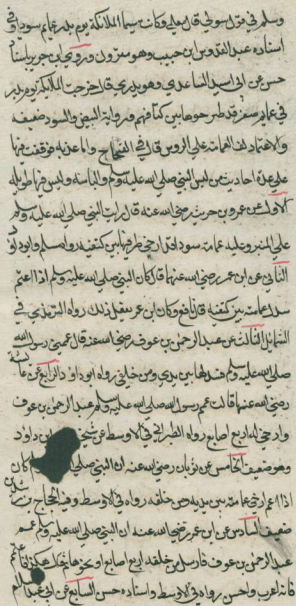 وسلم في قول سولي قال معلمي وكانت سيما الملائكة يوم بدر عمايم سود وفي
اسناده عبد القدوس ابن حبيب وهو متروك وروي ابن جرير باسناد
حسن عن ابي اسيد الساعدي وهو بدري قال خرجت الملائكة يوم بدر
في عمايم صفر قد طرحوها بين كتافهم ورواية البيض والسود ضعيفه
والاعتماد لف العمامة علي الروس قال في الصحاح وما عدبه فوقفت فيها
علي عدة احاديث من لبس النبي صلي الله عليه وسلم والباسه وليس فيها طويله
الاول عن عمرو بن حريث رضي الله عنه قال رايت النبي صلي الله عليه وسلم
علي المنبر وعليه عمامة سودا قد ارخي طرفها بين كتفيه رواه مسلم وابو داود
الثاني عن ابن عمر رضي الله عنهما قال كان النبي صلي الله عليه وسلم اذا اعتم
سدل عمامته بين كتفيه قال نافع وكان ابن عمر يفعل ذلك رواه الترمذي في
الشمائل الثالث عن عبد الرحمن بن عوف رضي الله عنه قال عممني رسول الله
صلي الله عليه وسلم فسدلها بين يدي ومن خلفي رواه ابو داود الرابع عن عائشة
رضي الله عنها قالت عمم رسول الله صلي الله عليه وسلم عبد الرحمن بن عوف
وارخي له اربع اصابع رواه الطبراني في الاوسط عن شيخه بن داود
وهو ضعيف الخامس عن ثوبان رضي الله عنه ان النبي صلي كان
اذا اعتم ارخي عمامته بين يديه ومن خلفه رواه في الاوسط وفيه الحجاج بن رشدين
ضعيف السادس عن ابن عمر رضي الله عنه ان النبي صلي الله عليه وسلم عمم
عبد الرحمن بن عوف فارسل من خلفه اربع اصابع او نحوها ثم قال هكذا فاعتم
فانه اعرب واحسن رواه في الاوسط واسناده حسن السابع عن ابي عبد السلام